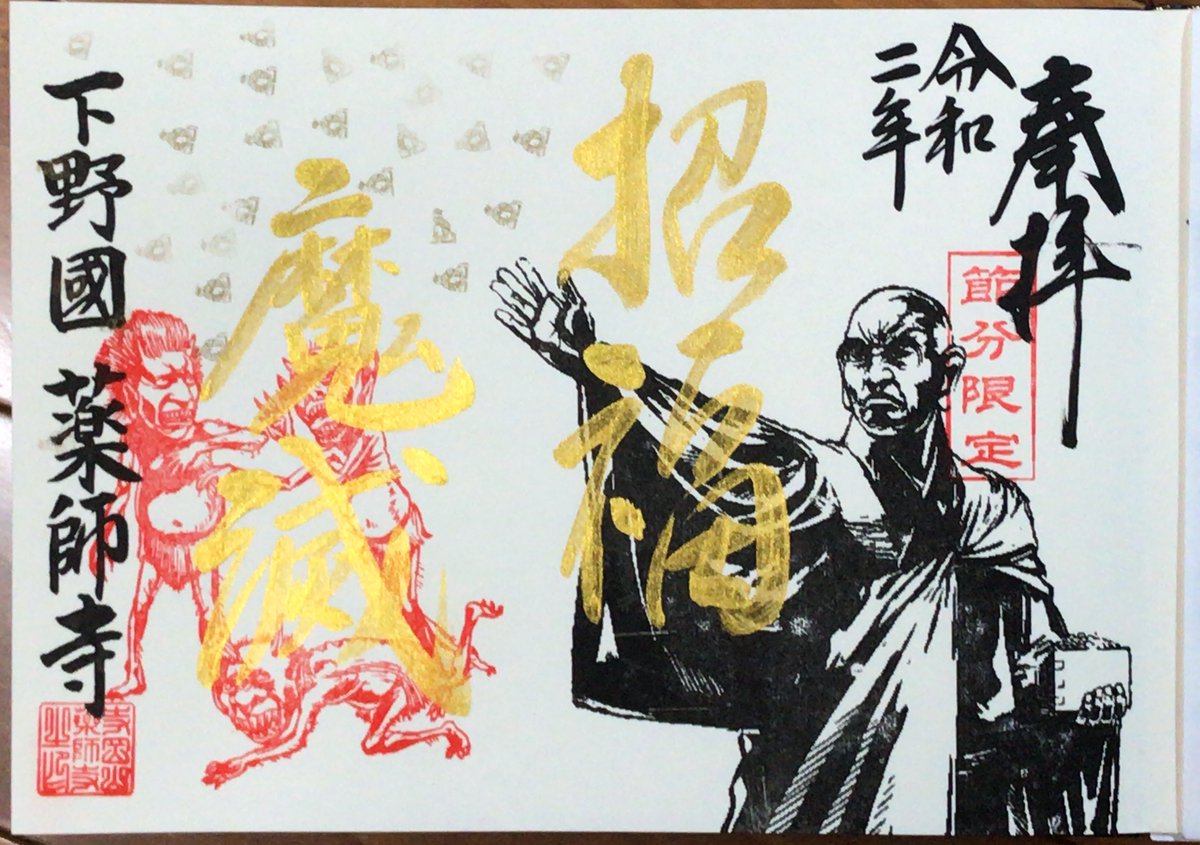 奉拝
令和
二年
節分限定
招福
魔滅
下野國 薬師寺